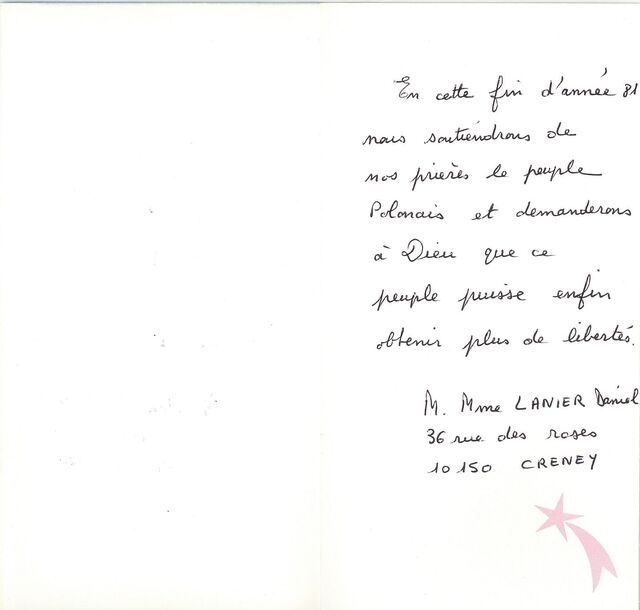 En cette fin d'année 81
nous soutiendrons de
nos prières le peuple
Polonais et demanderons
à Dieu que ce
peuple puisse enfin
obtenir plus de libertés.
M. Mme LANIER Daniel
36 rue des roses
10150 CRENEY